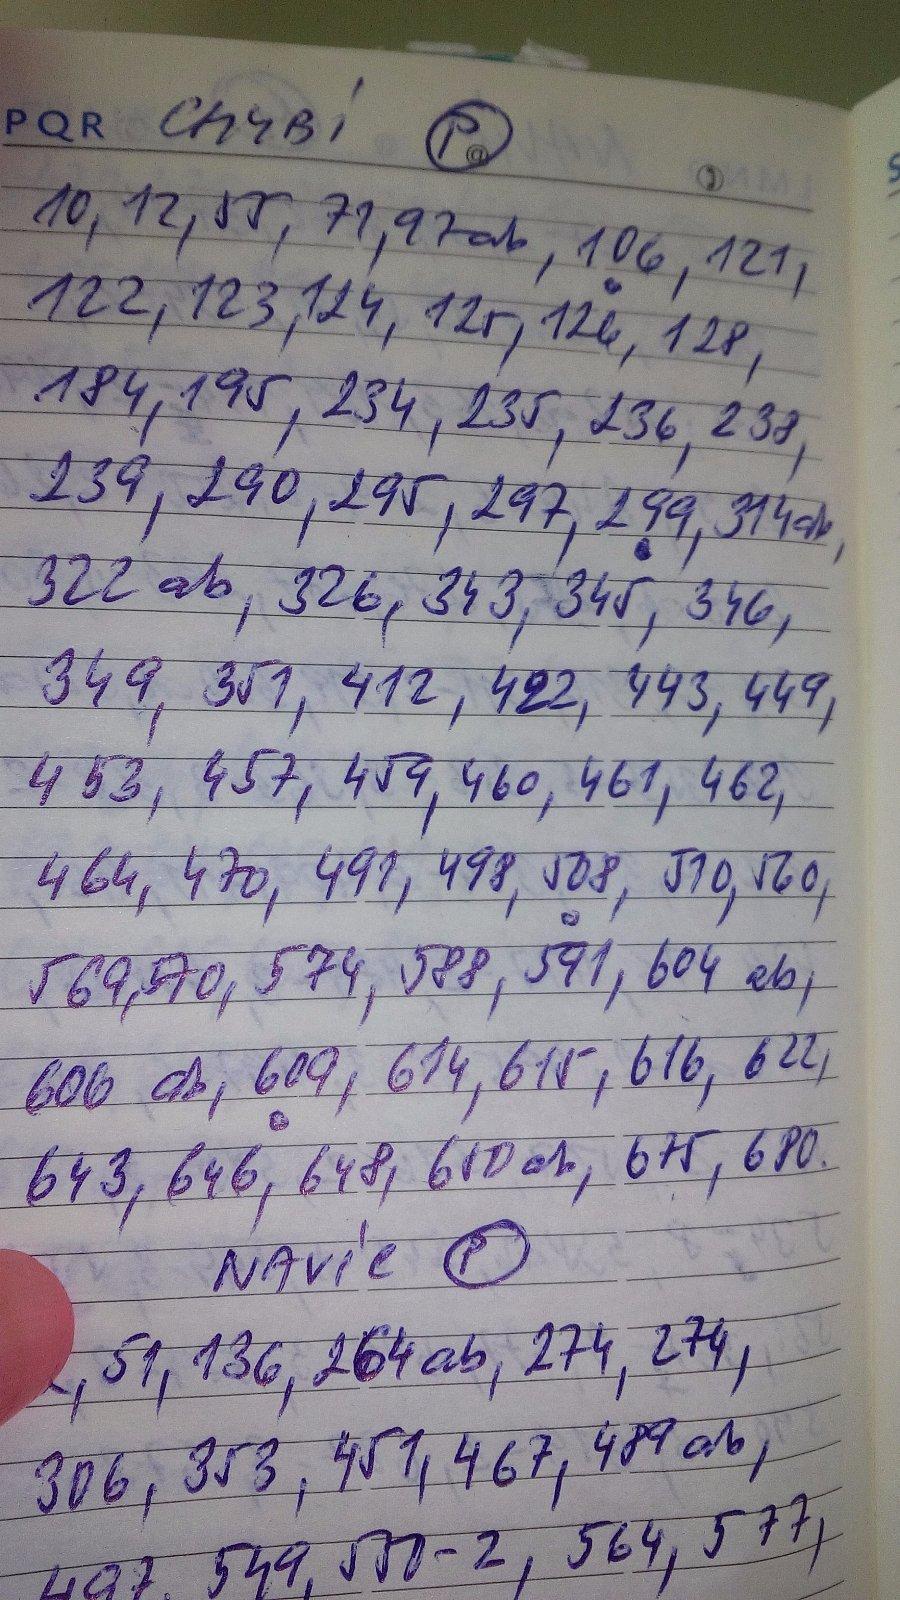 PQR CHYBÍ P @
10, 12, 55, 71, 97ab, 106, 121,
122, 123, 124, 125, 126, 128,
184, 195, 234, 235, 236, 238,
239, 290, 295, 297, 299, 314ab,
322 ab, 326, 343, 345, 346,
349, 351, 412, 422, 443, 449,
453, 457, 459, 460, 461, 462,
464, 470, 491, 498, 508, 510, 560,
569, 570, 574, 588, 591, 604 ab,
606 ab, 609, 614, 615, 616, 622,
643, 646, 648, 650 ab, 675, 680.
NAVÍC P
, 51, 136, 264 ab, 274, 274,
306, 353, 451, 467, 489 ab,
497, 549, 550-2, 564, 577,